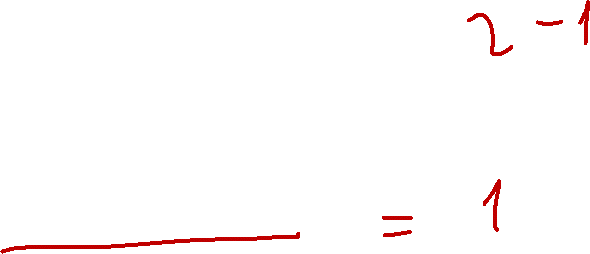 2 - 1
= 1